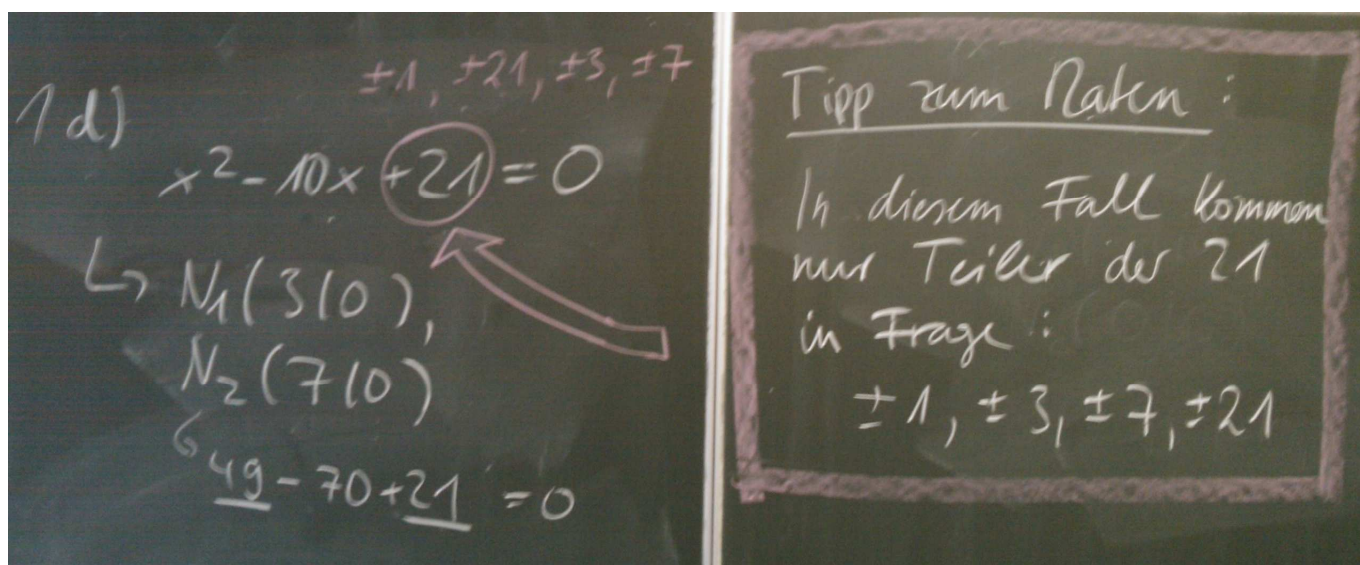 ±1, ±21, ±3, ±7
1d)
x² - 10x +21 = 0
↳ N₁(3|0),
N₂(7|0)
49 - 70 + 21 = 0
Tipp zum Raten:
In diesem Fall kommen
nur Teiler der 21
in Frage:
±1, ±3, ±7, ±21